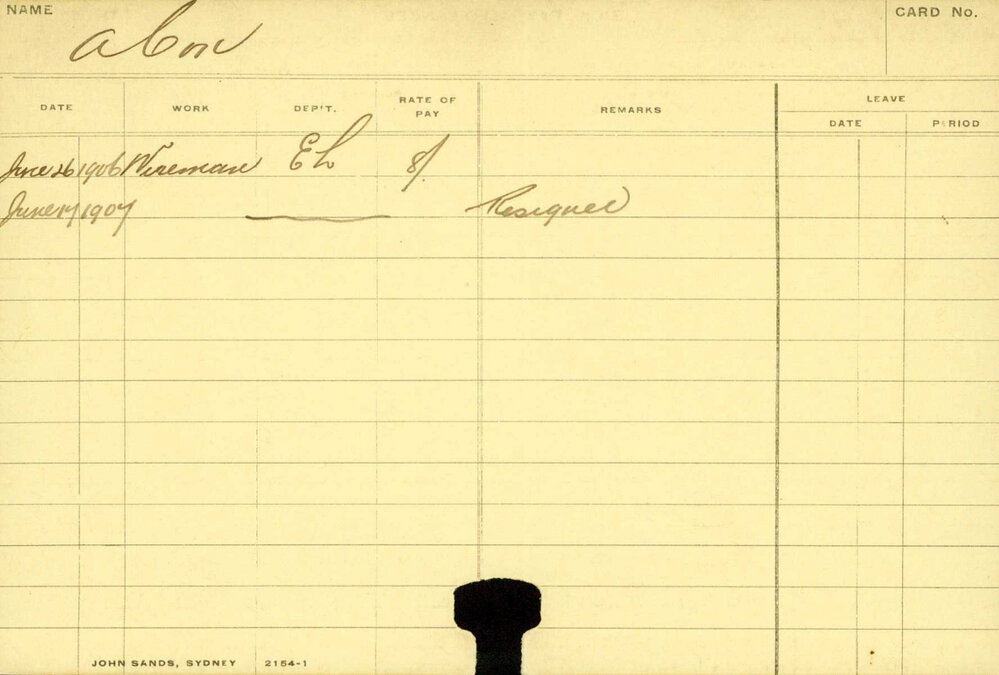 NAME
CARD No.
A Cox
DATE WORK DEP'T. RATE OF PAY REMARKS LEAVE
DATE PERIOD
June 26 1906 Wireman EL 8/
June 17 1907 Resigned
JOHN SANDS, SYDNEY 2154-1